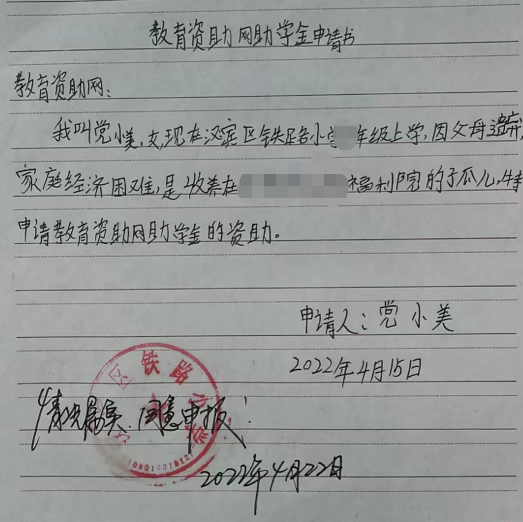 教育资助网助学金申请书
教育资助网:
我叫党小美,女,现在汉滨区铁路小学年级上学,因父母遗弃,
家庭经济困难,是收养在福利院的孤儿,特
申请教育资助网助学金的资助。
申请人:党小美
2022年4月15日
铁路小学
情况属实,同意申报!
2022年4月22日